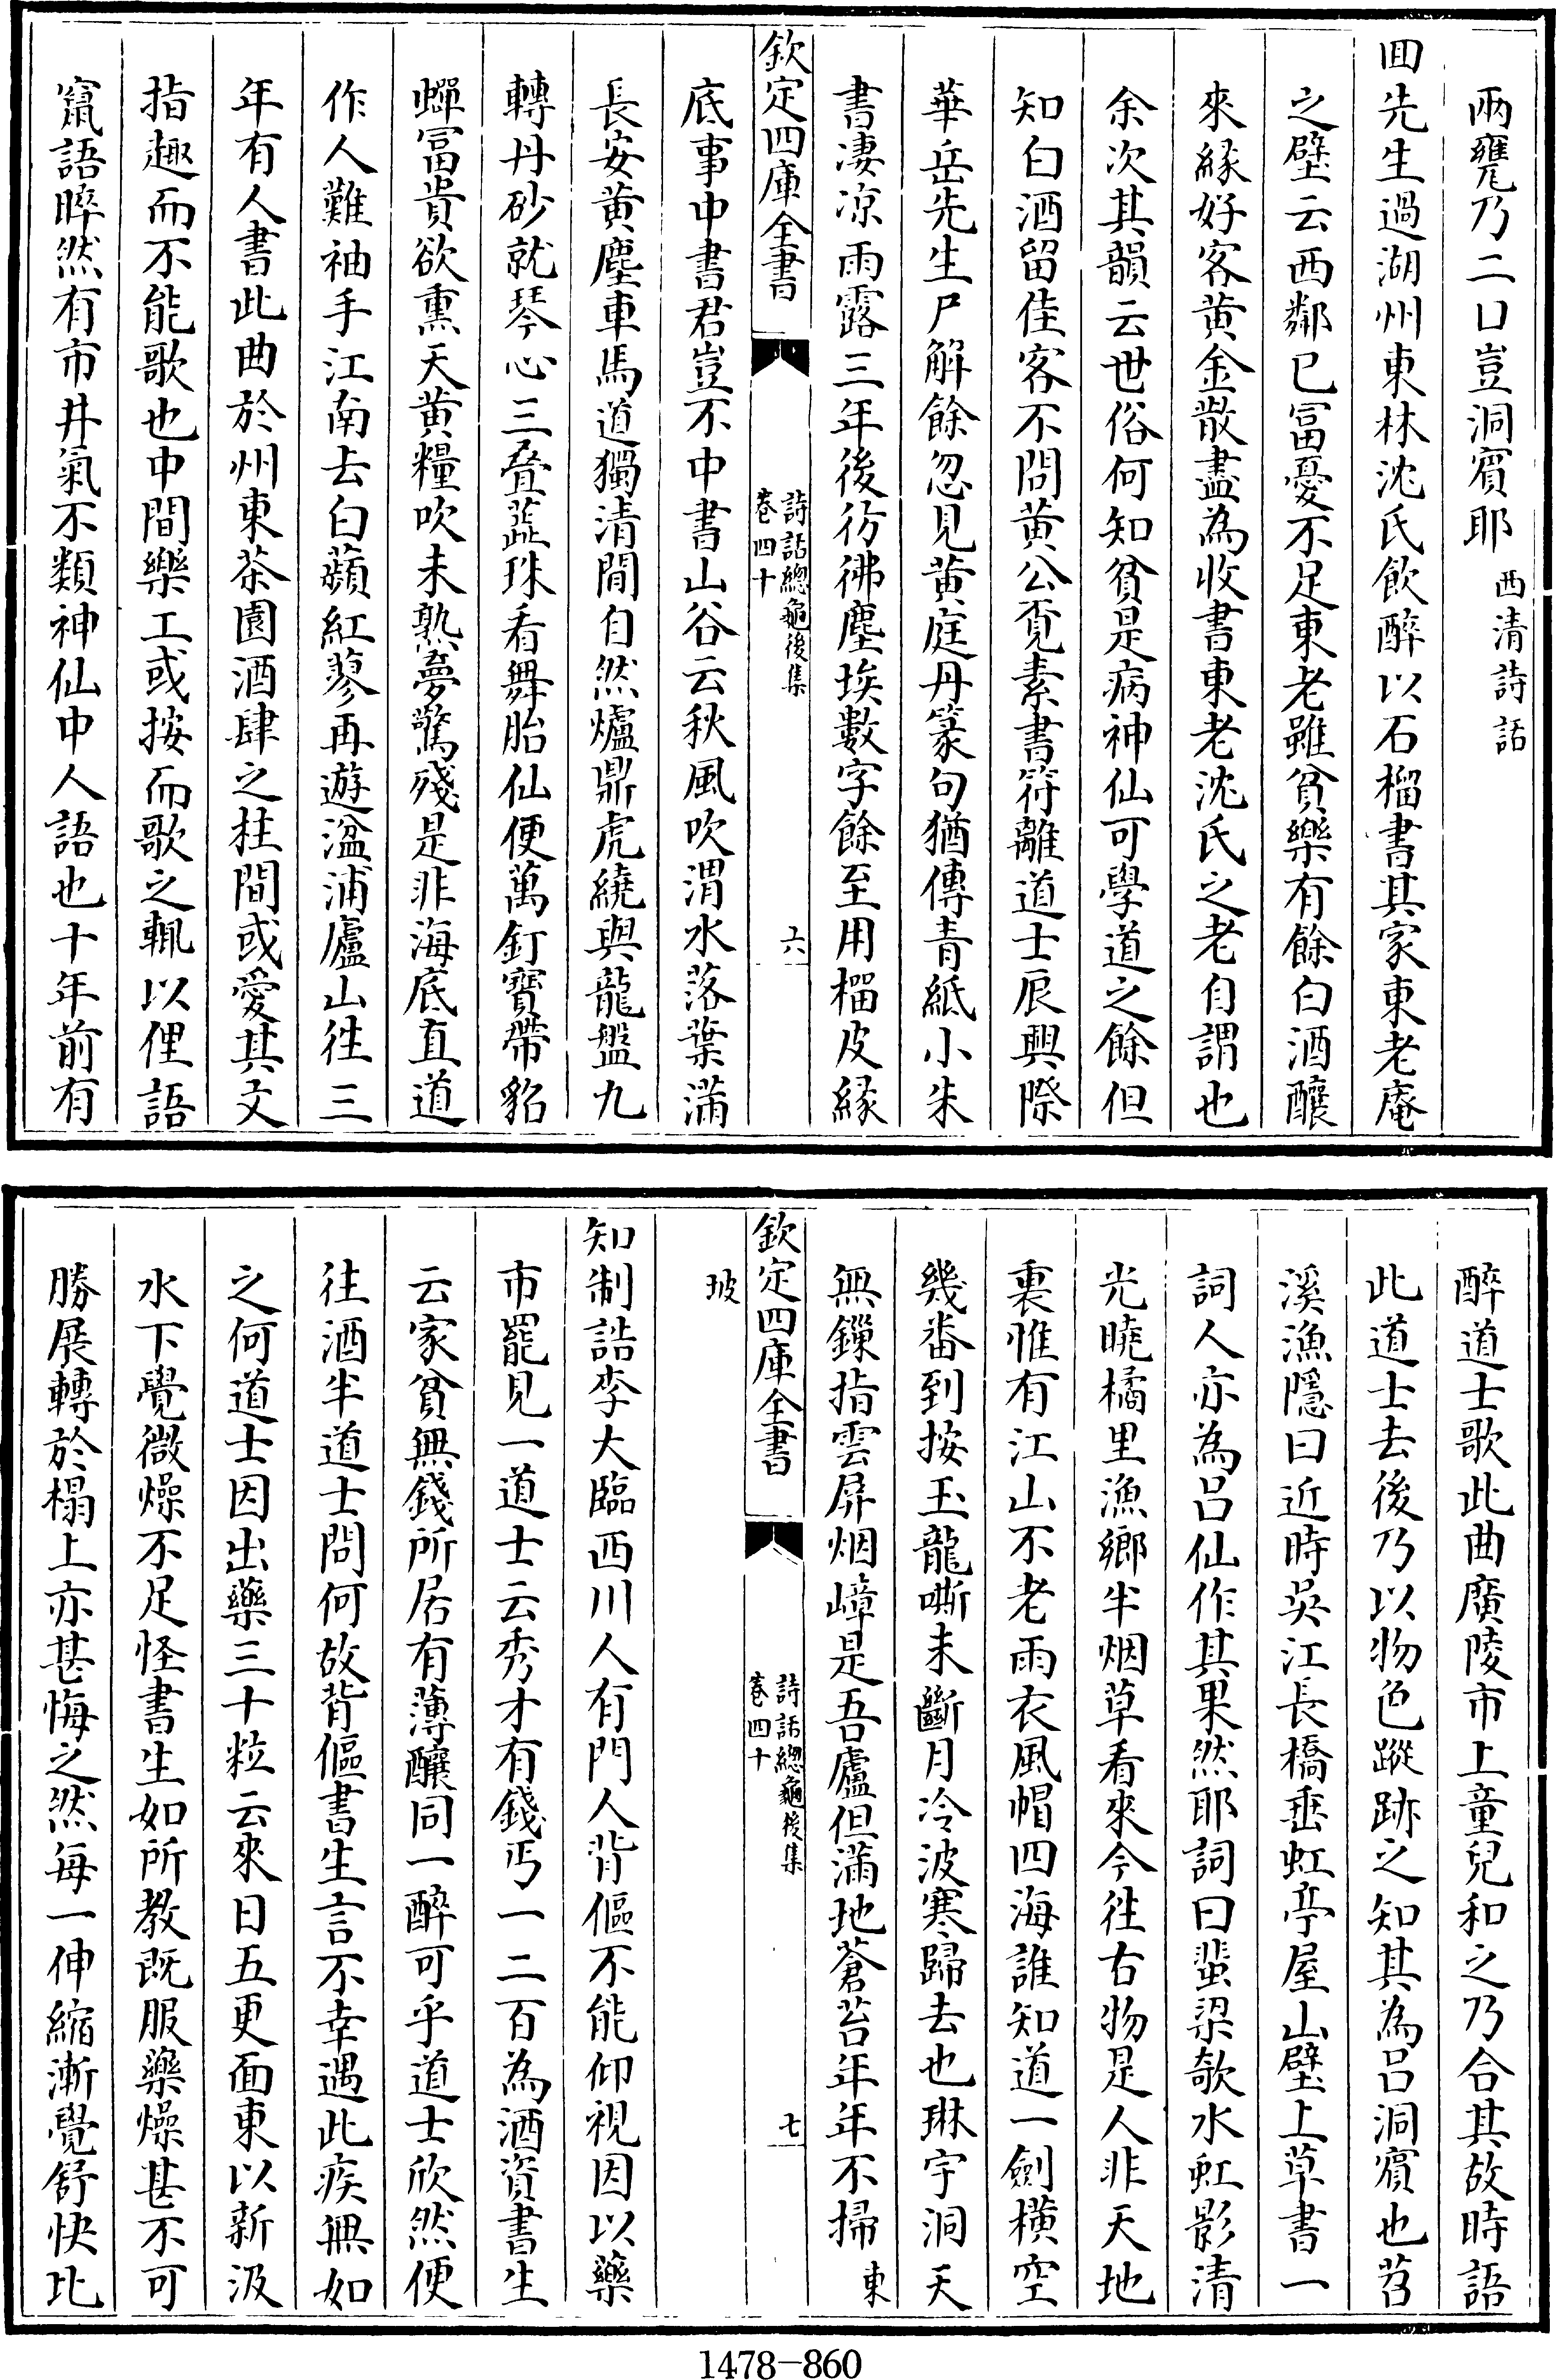 兩甕乃二口豈洞賓耶西清詩話
回先生過湖州東林沈氏飲醉以石榴書其家東老庵
之壁云西鄰已富憂不足東老雖貧樂有餘白酒釀
來緣好客黃金散盡為收書東老沈氏之老自謂也
余次其韻云世俗何知貧是病神仙可學道之餘但
知白酒留佳客不問黃公覔素書符離道士晨興際
華岳先生尸解餘忽見黃庭丹篆句猶傳青紙小朱
書凄涼雨露三年後彷彿塵埃數字餘至用榴皮緣
欽定四庫全書
詩話總龜後集
卷四十
六
底事中書君豈不中書山谷云秋風吹渭水落葉滿
長安黃塵車馬道獨清閒自然爐鼎虎繞與龍盤九
轉丹砂就琴心三疊蕋珠看舞胎仙便萬釘寶帶貂
蟬冨貴欲熏天黃糧吹未熟夢驚殘是非海底直道
作人難袖手江南去白蘋紅蓼再遊湓浦廬山徃三
年有人書此曲於州東茶園酒肆之柱間或愛其文
指趣而不能歌也中間樂工或按而歌之輒以俚語
竄語睟然有市井氣不類神仙中人語也十年前有
醉道士歌此曲廣陵市上童兒和之乃合其故時語
此道士去後乃以物色蹤跡之知其為呂洞賓也苕
溪漁隱曰近時吳江長橋垂虹亭屋山壁上草書一
詞人亦為呂仙作其果然耶詞曰蜚梁欹水虹影清
光曉橘里漁鄉半烟草看來今徃古物是人非天地
裏惟有江山不老雨衣風帽四海誰知道一劍橫空
幾畨到按玉龍嘶未斷月冷波寒歸去也琳宇洞天
無鏁指雲屏烟嶂是吾廬但滿地蒼苔年年不掃東
欽定四庫全書
詩話總龜後集
卷四十
七
坡
知制誥李大臨西川人有門人背傴不能仰視因以藥
市罷見一道士云秀才有錢丐一二百為酒資書生
云家貧無錢所居有薄釀同一醉可乎道士欣然便
往酒半道士問何故背傴書生言不幸遇此疾無如
之何道士因出藥三十粒云來日五更面東以新汲
水下覺微燥不足怪書生如所教既服藥燥甚不可
勝展轉於榻上亦甚悔之然每一伸縮漸覺舒快比
1478-860